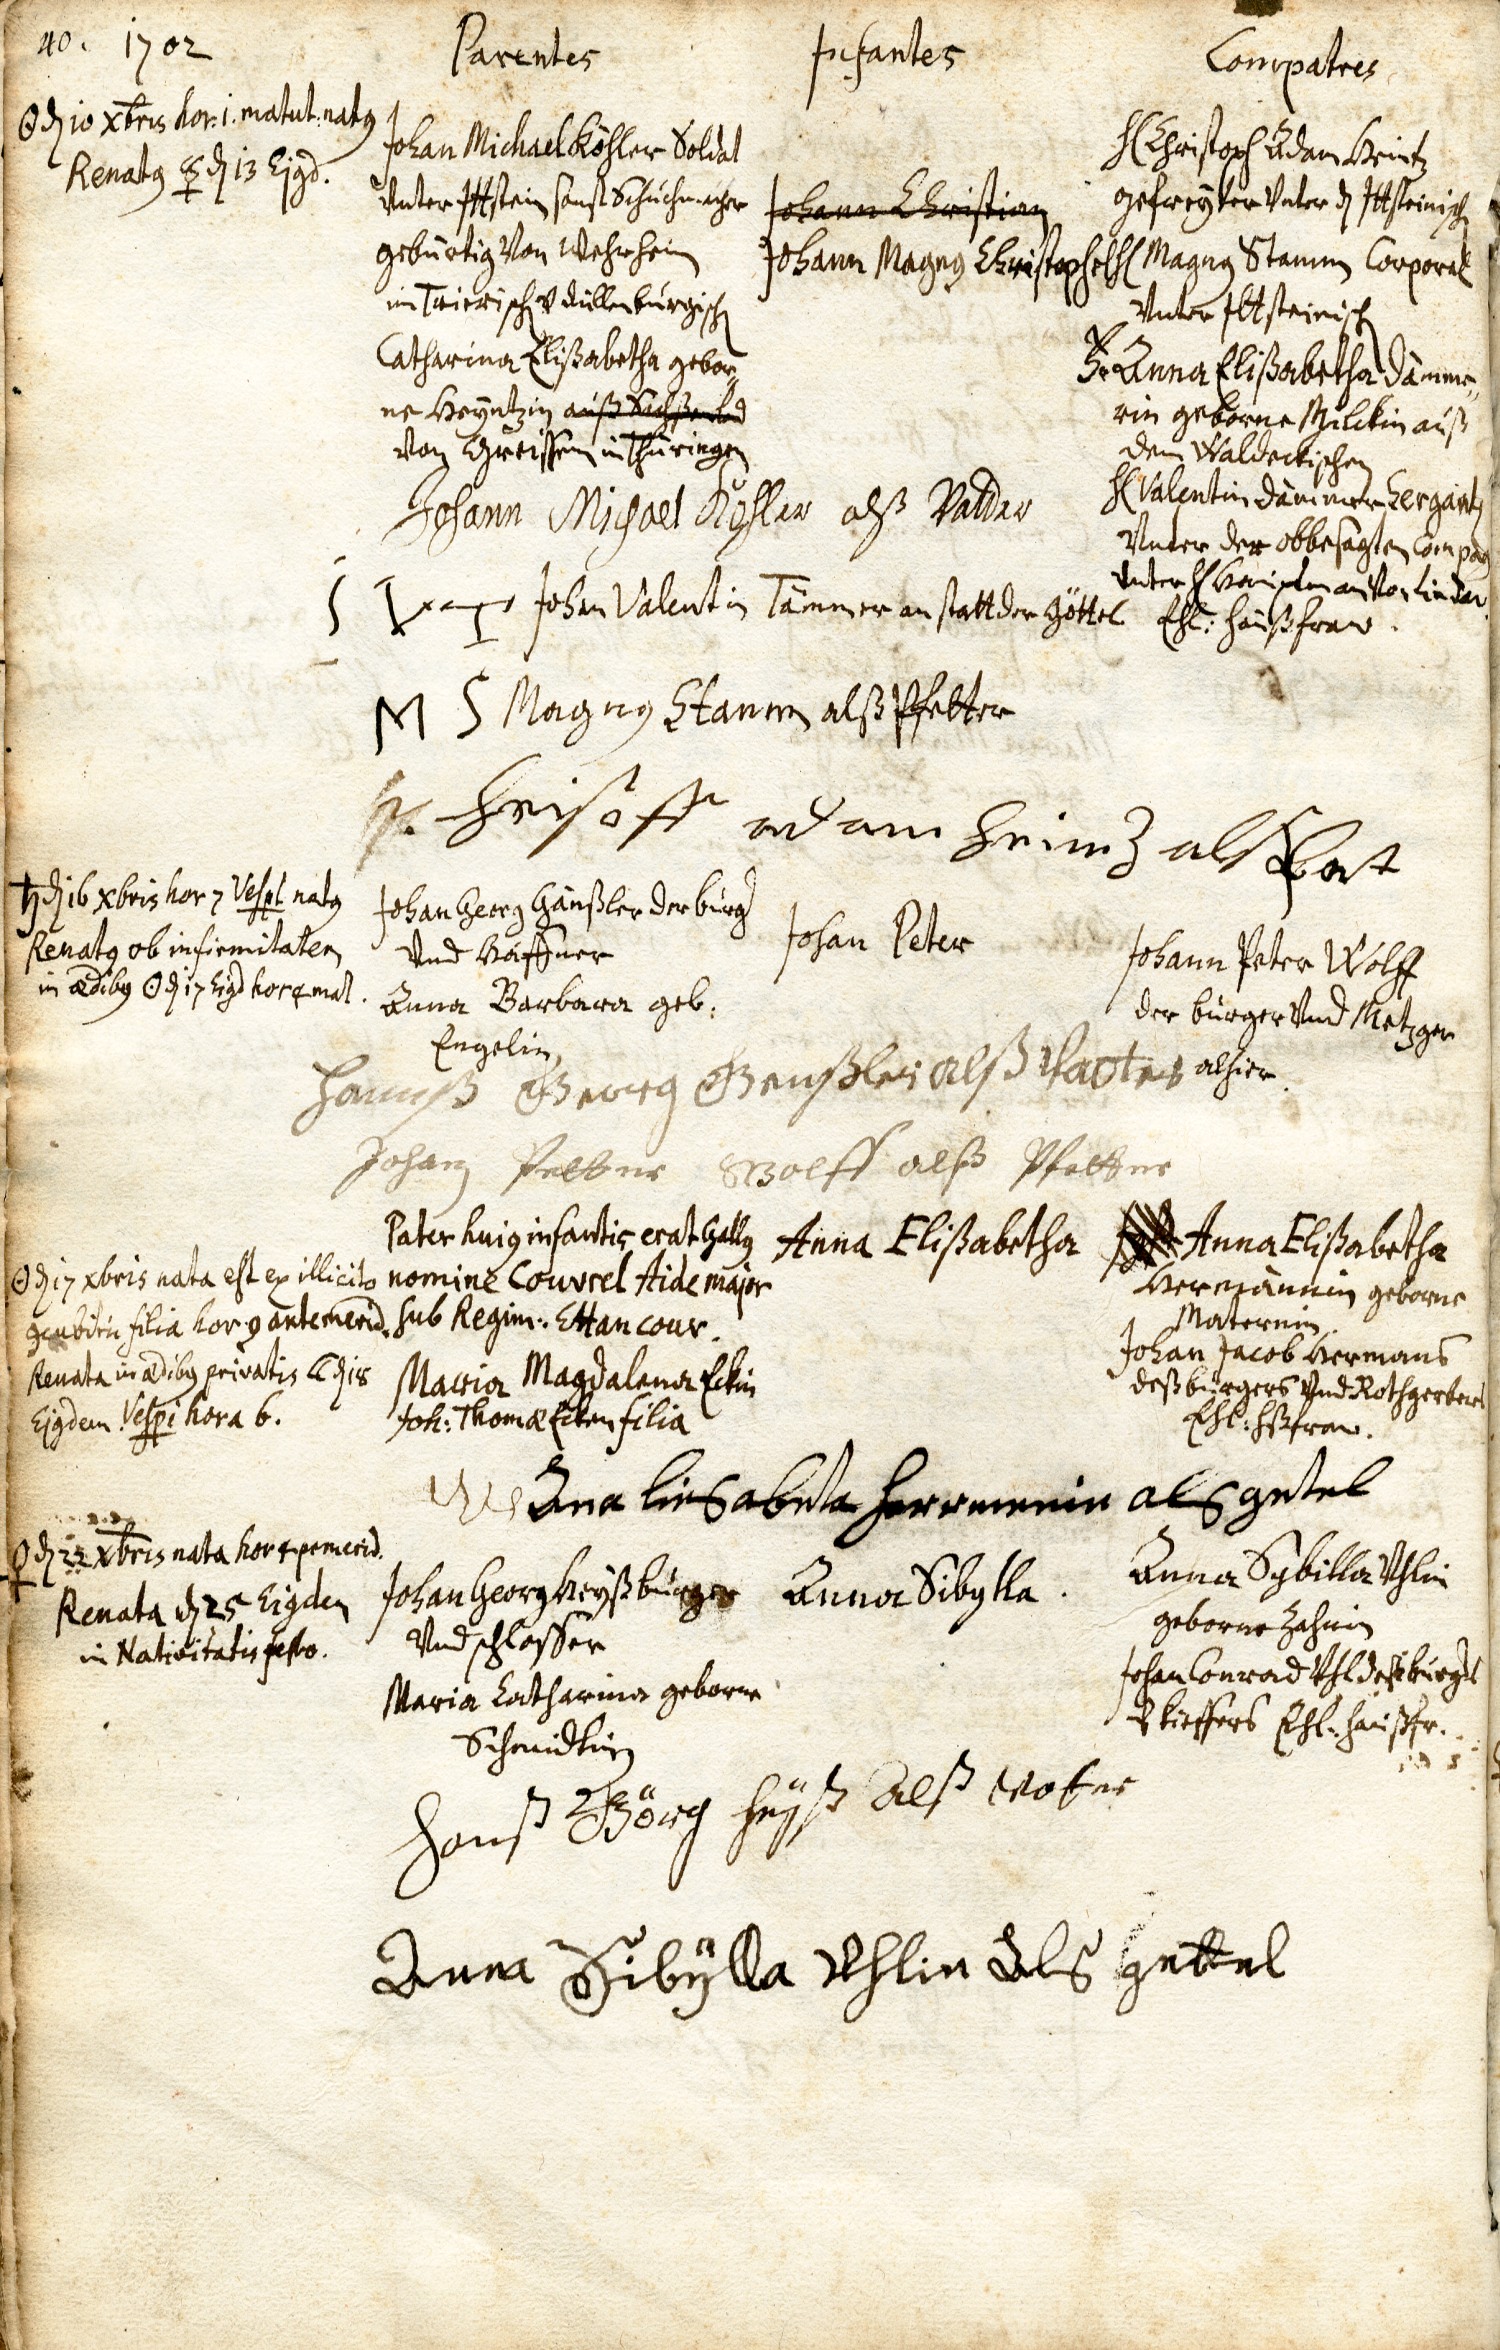 40. 1702
Parentes
Infantes
Compatres
☉ d 10 Xbris hor. 1. matut. natq
Renatq ☿ d 13 Ejqd.
Johan Michael Köhler Soldat
Unter Ittstein sonst Schuchmacher
gebürtig Von Wehrheim
im Trierisch V düllenburgisch
Catharina Elißabetha gebor-
ne Heyntzin auß Sachßenland
Von Greissem in Thüringen
Johann Christian
Johann Magnq Christophel
H Christoph Adam Heintz
gefreyter Unter d Ittsteinisch
H Magnq Stamm Corporal
Unter Ittsteinisch
Fr Anna Elißabetha Dämme-
rin geborne Milckin auß
dem Waldeckischen
H Valentin Dämmer Sergiant
Unter der obbesagten Comp
Unter H von Lindau
Ehl: haußfraw.
Johann Michael Köhler alß Vatter
Johan Valentin Tämmer an statt der göttel
M S Magnq Stamm alß Pfetter
Chrisoff adam heinz als Pat
♄ d 16 Xbris hor 7 Vesp natq
Renatq ob infirmitatem
in ædibq ☉ d 17 Ejqd hor 4 mat.
Johan Georg Gänßler der burg
Und Haffner
Anna Barbara geb:
Engelin
Johan Peter
Johann Peter Wolff
der bürger Und Metzger
alhier.
Hannß Georg Genßler alß Vatter
Johan Petter Wolff alß Pfetter
☉ d 17 Xbris nata est ex illicito
concubitu filia hor. 9 antemerid.
Renata in ædibq privatis ☾ d 18
Ejqdem Vespi hora 6.
Pater hujq infantis erat Gallq
nomine Couvrel Aide major
sub Regim: Ettancour.
Maria Magdalena Eckin
Joh: Thomæ Ecken filia
Anna Elißabetha
Anna Elißabetha
Hermännin geborne
Maternin.
Johan Jacob Hermans
deß bürgers Und Rothgerbers
Ehl: hßfraw.
Ana liesabeta herrmenin als getel
♀ d 22 Xbris nata hor 4 pomerid.
Renata d 25 Ejqdem
in Nativitatis festo.
Johan Georg Heyß bürger
Und schlosser
Maria Catharina geborne
Schmidtin
Anna Sibylla.
Anna Sybilla Uhlin
geborne Hahnin
Johan Conrad Uhl deß bürgers
V kieffers Ehl: haußfr.
Hanß Görg heÿß alß vater
Anna Sibÿlla Uhlin Als gettel